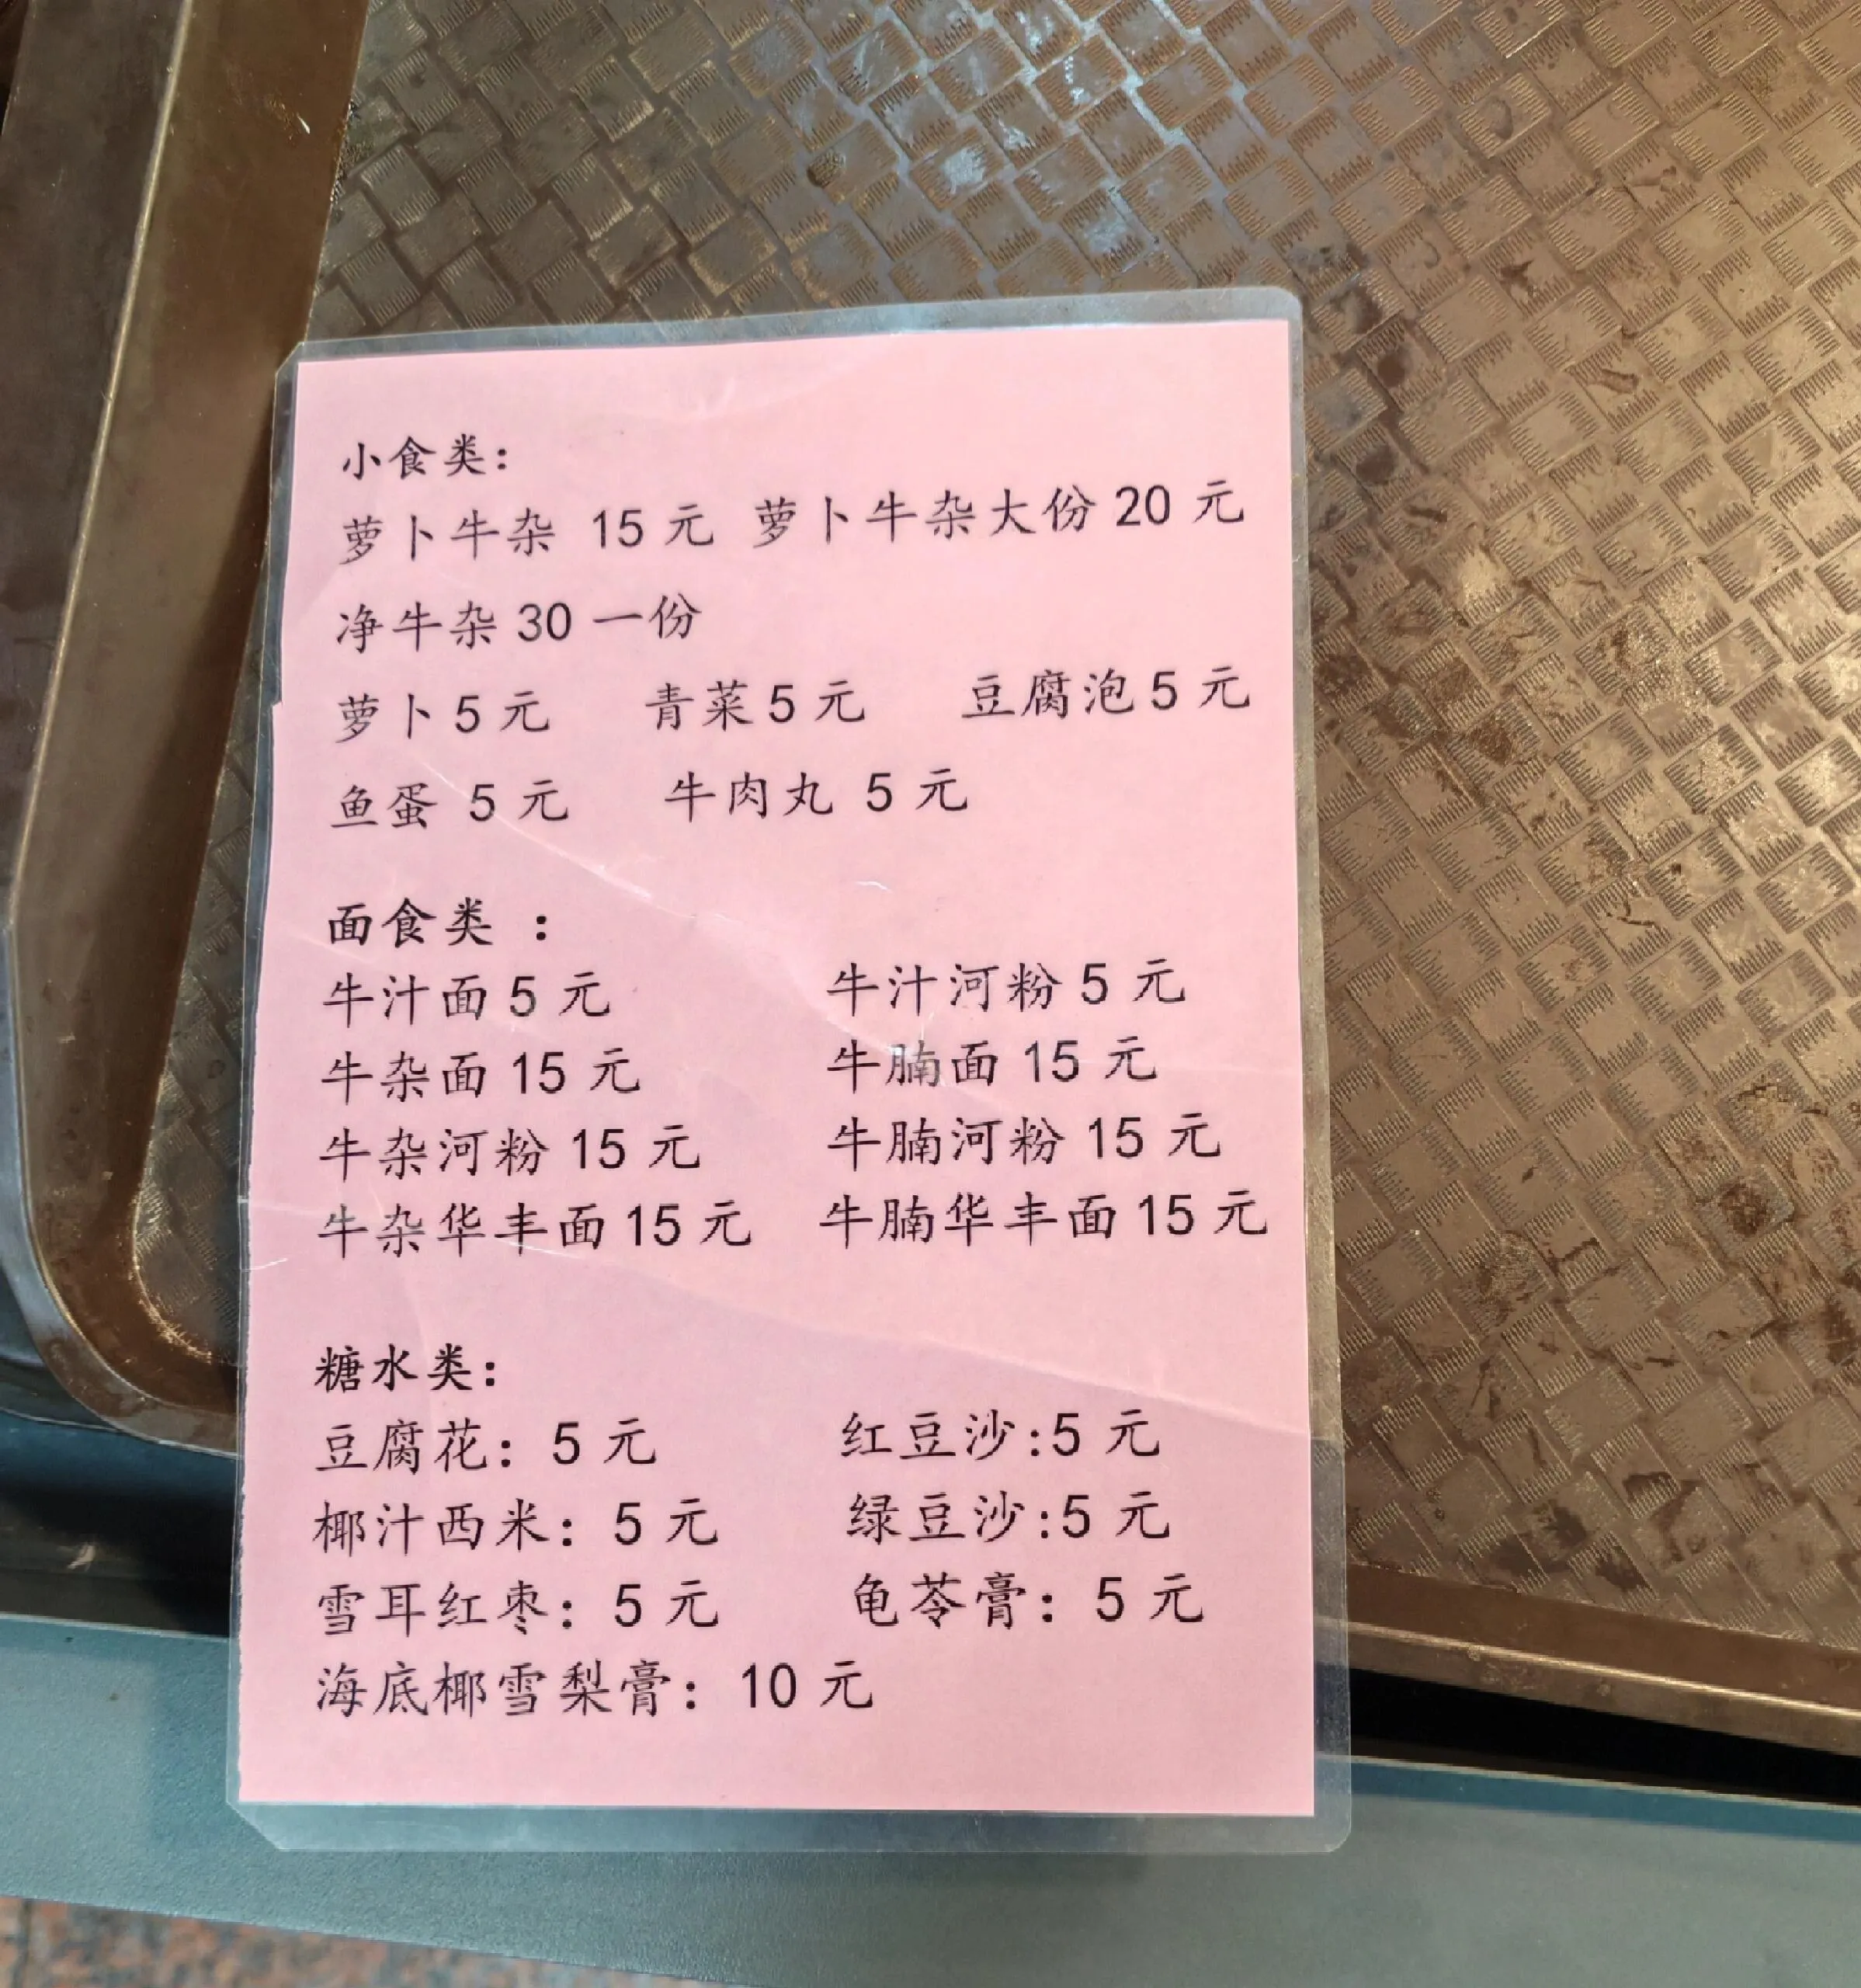 小食类：
萝卜牛杂 15 元 萝卜牛杂大份 20 元
净牛杂 30 一份
萝卜 5 元 青菜 5 元 豆腐泡 5 元
鱼蛋 5 元 牛肉丸 5 元
面食类 ：
牛汁面 5 元 牛汁河粉 5 元
牛杂面 15 元 牛腩面 15 元
牛杂河粉 15 元 牛腩河粉 15 元
牛杂华丰面 15 元 牛腩华丰面 15 元
糖水类：
豆腐花：5 元 红豆沙:5 元
椰汁西米：5 元 绿豆沙:5 元
雪耳红枣：5 元 龟苓膏：5 元
海底椰雪梨膏：10 元